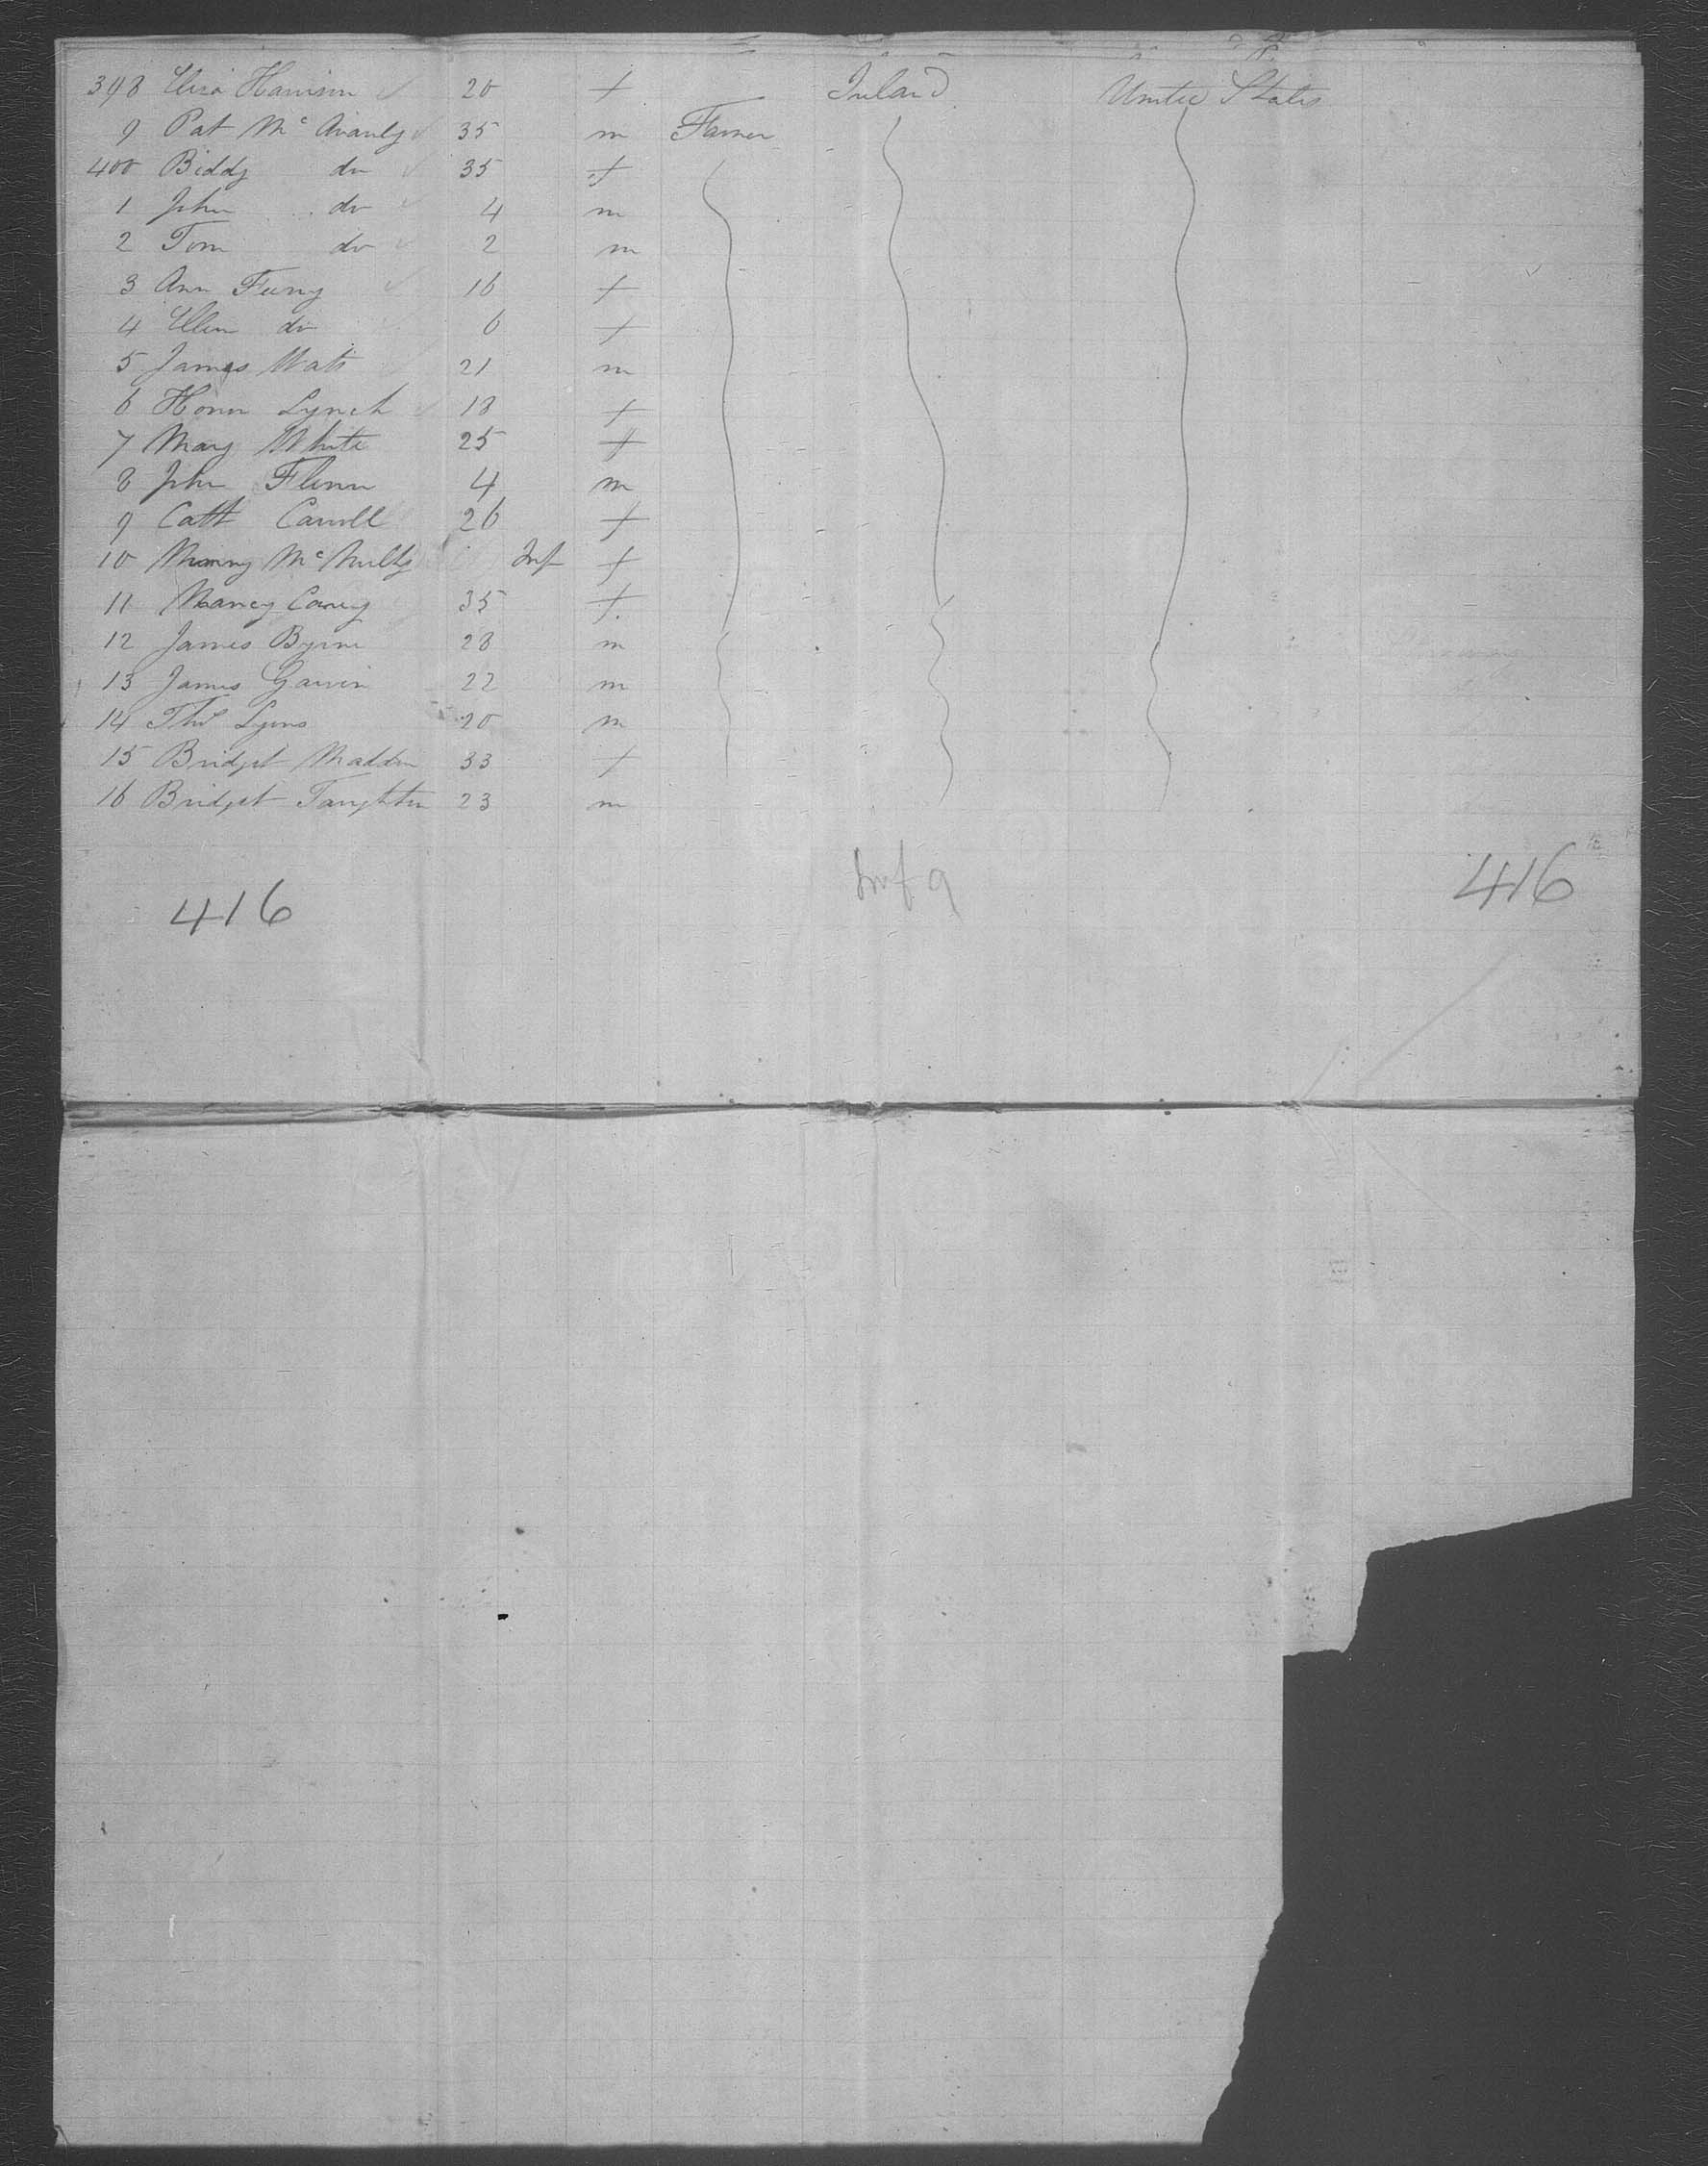 398 Eliza Harrison 20 f Ireland United States
9 Pat Mc Avanly 35 m Farmer
400 Biddy do 35 f
1 John do 4 m
2 Tom do 2 m
3 Ann Feeny 16 f
4 Ellen do 6 f
5 James Watt 21 m
6 Honor Lynch 18 f
7 Mary White 25 f
8 John Flinn 4 m
9 Cath Carroll 26 f
10 Mc Nulty Inf f
11 Nancy Carey 35 f
12 James Byrne 28 m
13 James Gavin 22 m
14 Thos Lyons 20 m
15 Bridget Madden 33 f
16 Bridget Naughten 23 m
416 Inf 9 416